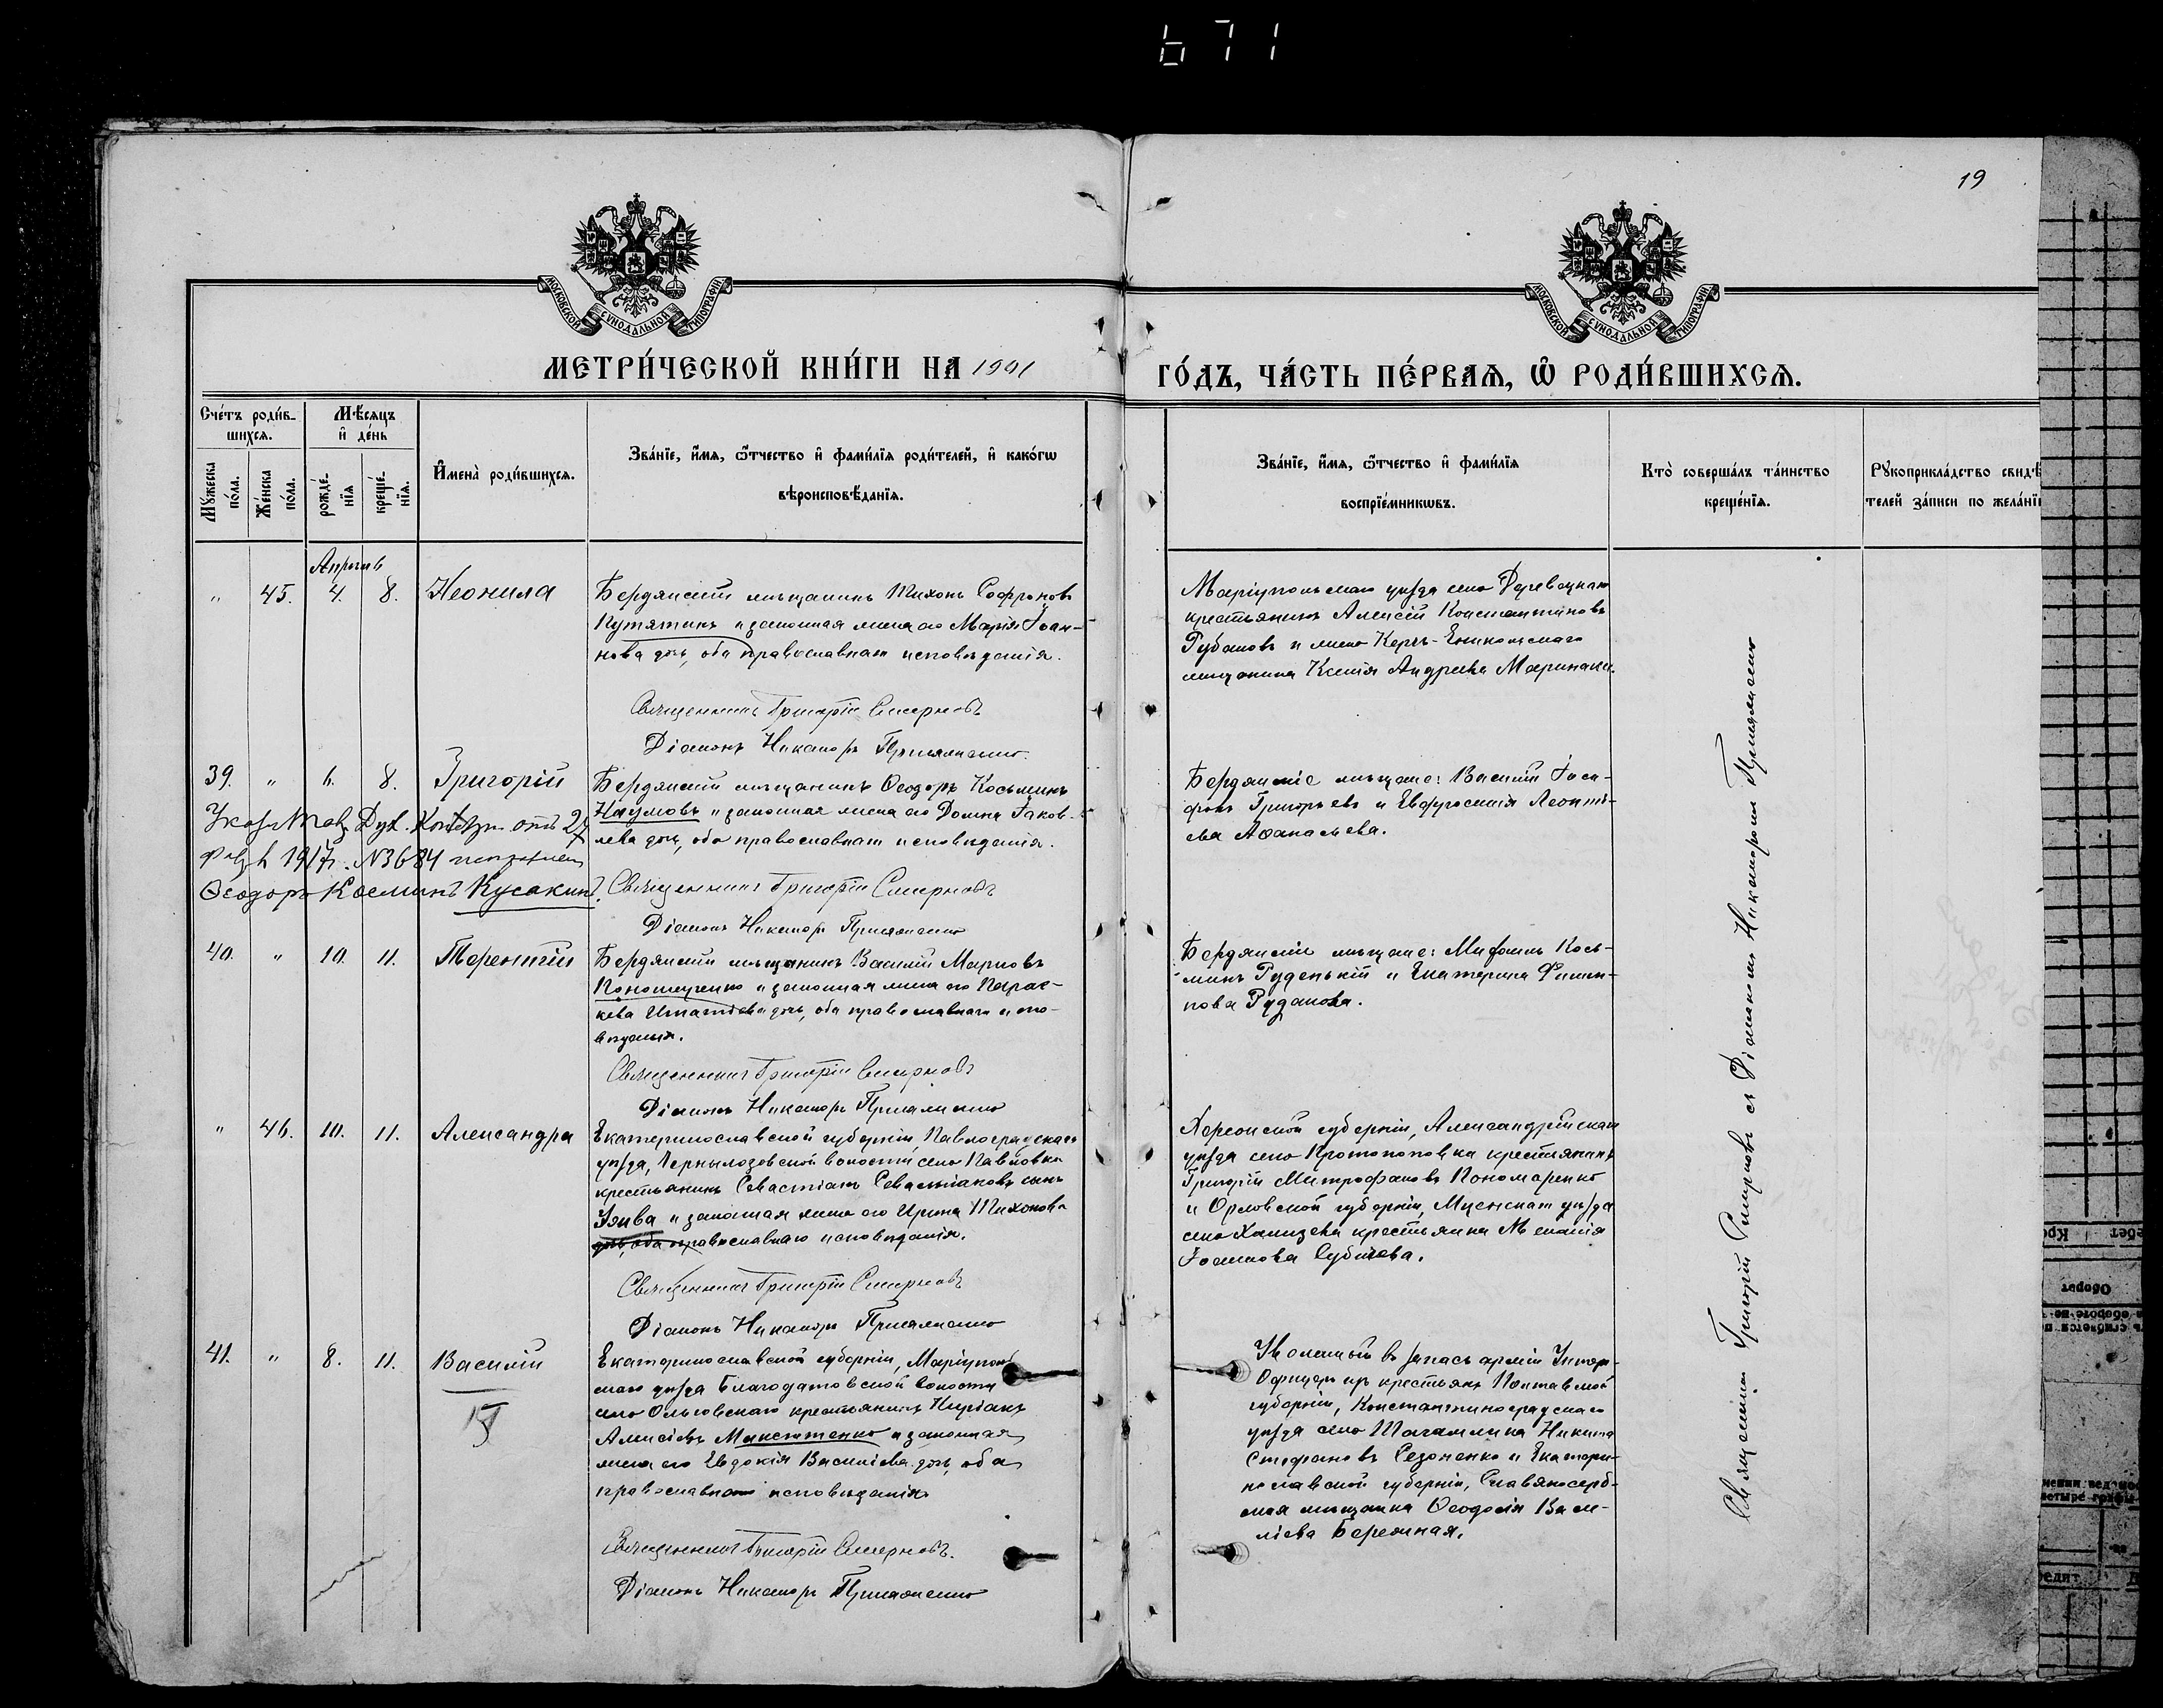 671
19
МОСКОВСКОЙ СУНОДАЛЬНОЙ ТИПОГРАФІИ
МОСКОВСКОЙ СУНОДАЛЬНОЙ ТИПОГРАФІИ
МЕТРИ́ЧЕСКОЙ КНИ́ГИ НА 1901
ГО́ДЪ, ЧА́СТЬ ПЕ́РВАѦ, Ѡ҆ РОДИ́ВШИХСѦ.
Сче́тъ роди́в-
шихсѧ.
Мꙋ́жеска
по́ла.
Же́нска
по́ла.
Мѣ́сѧцъ
и҆ де́нь
рожде́-
нїѧ
креще́-
нїѧ.
И҆мена̀ роди́вшихсѧ.
Зва́нїе, и҆́мѧ, ѻ҆́тчество и҆ фами́лїѧ роди́телей, и҆ како́гѡ
вѣроисповѣ́данїѧ.
Зва́нїе, и҆́мѧ, ѻ҆́тчество и҆ фами́лїѧ
воспрїе́мникѡвъ.
Кто̀ соверша́лъ та́инство
креще́нїѧ.
Рꙋкоприкла́дство свидѣ́
телей за́писи по жела́нї
Апрѣль
" 45. 4. 8. Неонила
Бердянскій мѣщанинъ Тихонъ Софроновъ
Путятинъ и законная жена его Марія Іоан-
нова дочь, оба православнаго исповѣданія.
Священникъ Григорій Смирновъ
Діаконъ Никаноръ
Маріупольскаго уѣзда села
крестьянинъ Алексій Константиновъ
Рубановъ и жена Керчь-Еникольскаго
мѣщанина Ксенія Андреева Маринаки.
39. " 6. 8. Григорій
Бердянскій мѣщанинъ Ѳеодоръ Косьминъ
Наумовъ и законная жена его Домна Іаков-
лева дочь, оба православнаго исповѣданія.
Указ. Тавр. Дух. Конс. отъ 27
1917 г. №3684
Ѳеодоръ Косминъ Кусакинъ.
Священникъ Григорій Смирновъ
Діаконъ Никаноръ
Бердянскіе мѣщане: Василій
Григорьевъ и Евфросинія Леонтіе-
ва Аѳанасьева.
40. " 10. 11. Терентій
Бердянскій мѣщанинъ Василій Марковъ
Кономученко и законная жена его Парас-
кева Игнатіева дочь, оба православнаго испо-
вѣданія.
Священникъ Григорій Смирновъ
Діаконъ Никаноръ
Бердянскіе мѣщане: Косъ-
минъ Руденькій и Екатерина Филип-
пова Рудакова.
" 46. 10. 11. Александра
Екатеринославской губерніи, Павлоградскаго
уѣзда, волости села Павловка
крестьянинъ Севастіанъ Севастіановъ сынъ
и законная жена его Ирина Тихонова
дочь, оба православнаго исповѣданія.
Священникъ Григорій Смирновъ
Діаконъ Никаноръ
Херсонской губерніи, Александрійскаго
уѣзда села Протопоповка крестьянинъ
Григорій Митрофановъ Пономаренко
и Орловской губерніи, Мценскаго уѣзда
села крестьянка Меланія
Іоаннова
41. " 8. 11. Василій
Екатеринославской губерніи, Маріуполь
скаго уѣзда Благодатовской волости
села Ольговскаго крестьянинъ Киріакъ
Алексіевъ Максютенко и законная
жена его Евдокія Василіева дочь, оба
православнаго исповѣданія
Священникъ Григорій Смирновъ.
Діаконъ Никаноръ
Уволенный въ запасъ арміи Унтеръ-
Офицеръ изъ крестьянъ Полтавской
губерніи, Константиноградскаго
уѣзда села Никита
Стефановъ Сезоненко и Екатери-
нославской губерніи, Славяносерб-
ская мѣщанка Ѳеодосія Васи-
ліева Бережная.
Священникъ Григорій Смирновъ съ Діакономъ Никаноромъ
Оборот